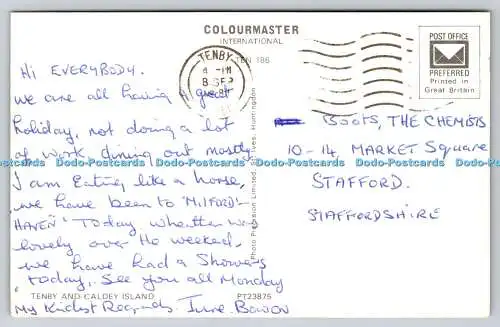 COLOURMASTER
INTERNATIONAL
TEN 186
TENBY
8 SEP
POST OFFICE
PREFERRED
Printed in
Great Britain
Hi EVERYBODY.
we are all having A great
holiday, not doing a lot
of work, dining out mostly
I am Eating like a horse,
we have been to "MILFORD-
HAVEN" Today wheather was
lovely over the weekend,
we have had a Showers
today, See you all Monday
My Kindest Regards. June
Boots, THE CHEMISTS
10-14, MARKET Square
STAFFORD.
STAFFORDSHIRE
Photo Precision Limited, St. Ives, Huntingdon
TENBY AND CALDEY ISLAND
PT23875
Dodo-Postcards Dodo-Postcards Dodo-Postcards Dodo-Postcards Dodo-Postcards